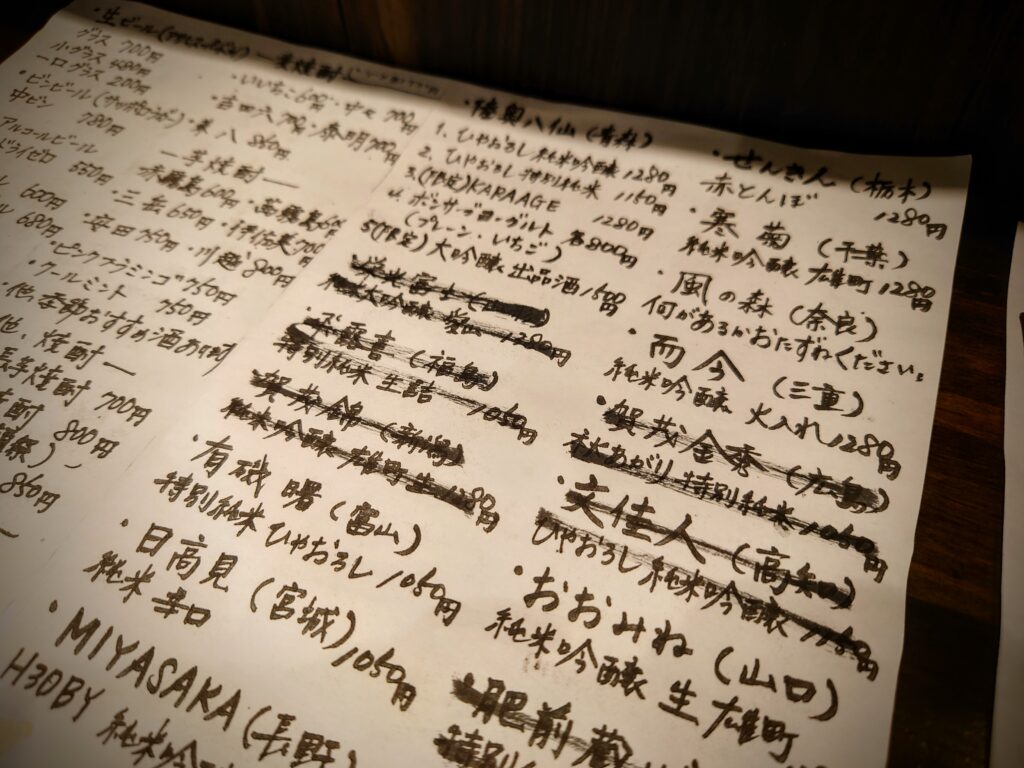 ・生ビール
グラス 700円
小グラス 480円
一口グラス 200円
・ビンビール
中ビン 780円
アルコールビール
ドライゼロ 550円
600円
680円
・ピンクフラミンゴ 750円
・クールミント 750円
・他、季節おすすめ酒あります
他、焼酎 ―
長芋焼酎 700円
焼酎 800円
850円
― 麦焼酎 ―
・いいちこ 600・中々 700円
・吉四六 700・春明 700円
・兼八 860円
― 芋焼酎 ―
・三岳 650円・伊佐美 700
・安田 750円・川越 800円
・陸奥八仙 (青森)
1. ひやおろし 純米吟醸 1280円
2. ひやおろし 特別純米 1150円
3.(限定) KARAAGE 1280円
4. ドンサ・ブヨーグルト 800円
(プレーン・いちご)
5(限定) 大吟醸 出品酒 1500円
特別純米 生詰 1050円
・賀茂錦 (新潟)
純米吟醸 雄町 生 1180円
・有磯 曙 (富山)
特別純米 ひやおろし 1050円
・日高見 (宮城)
純米 辛口 1050円
・MIYASAKA (長野)
H30BY 純米吟
・せんきん (栃木)
赤とんぼ 1280円
・寒菊 (千葉)
純米吟醸 雄町 1280円
・風の森 (奈良)
何があるかおたずねください。
・而今 (三重)
純米吟醸 火入れ 1280円
・賀茂金秀 (広島)
秋あがり 特別純米 1050円
・文佳人 (高知)
ひやおろし 純米吟醸 1150円
・おおみね (山口)
純米吟醸 生 雄町
・肥前蔵
特別